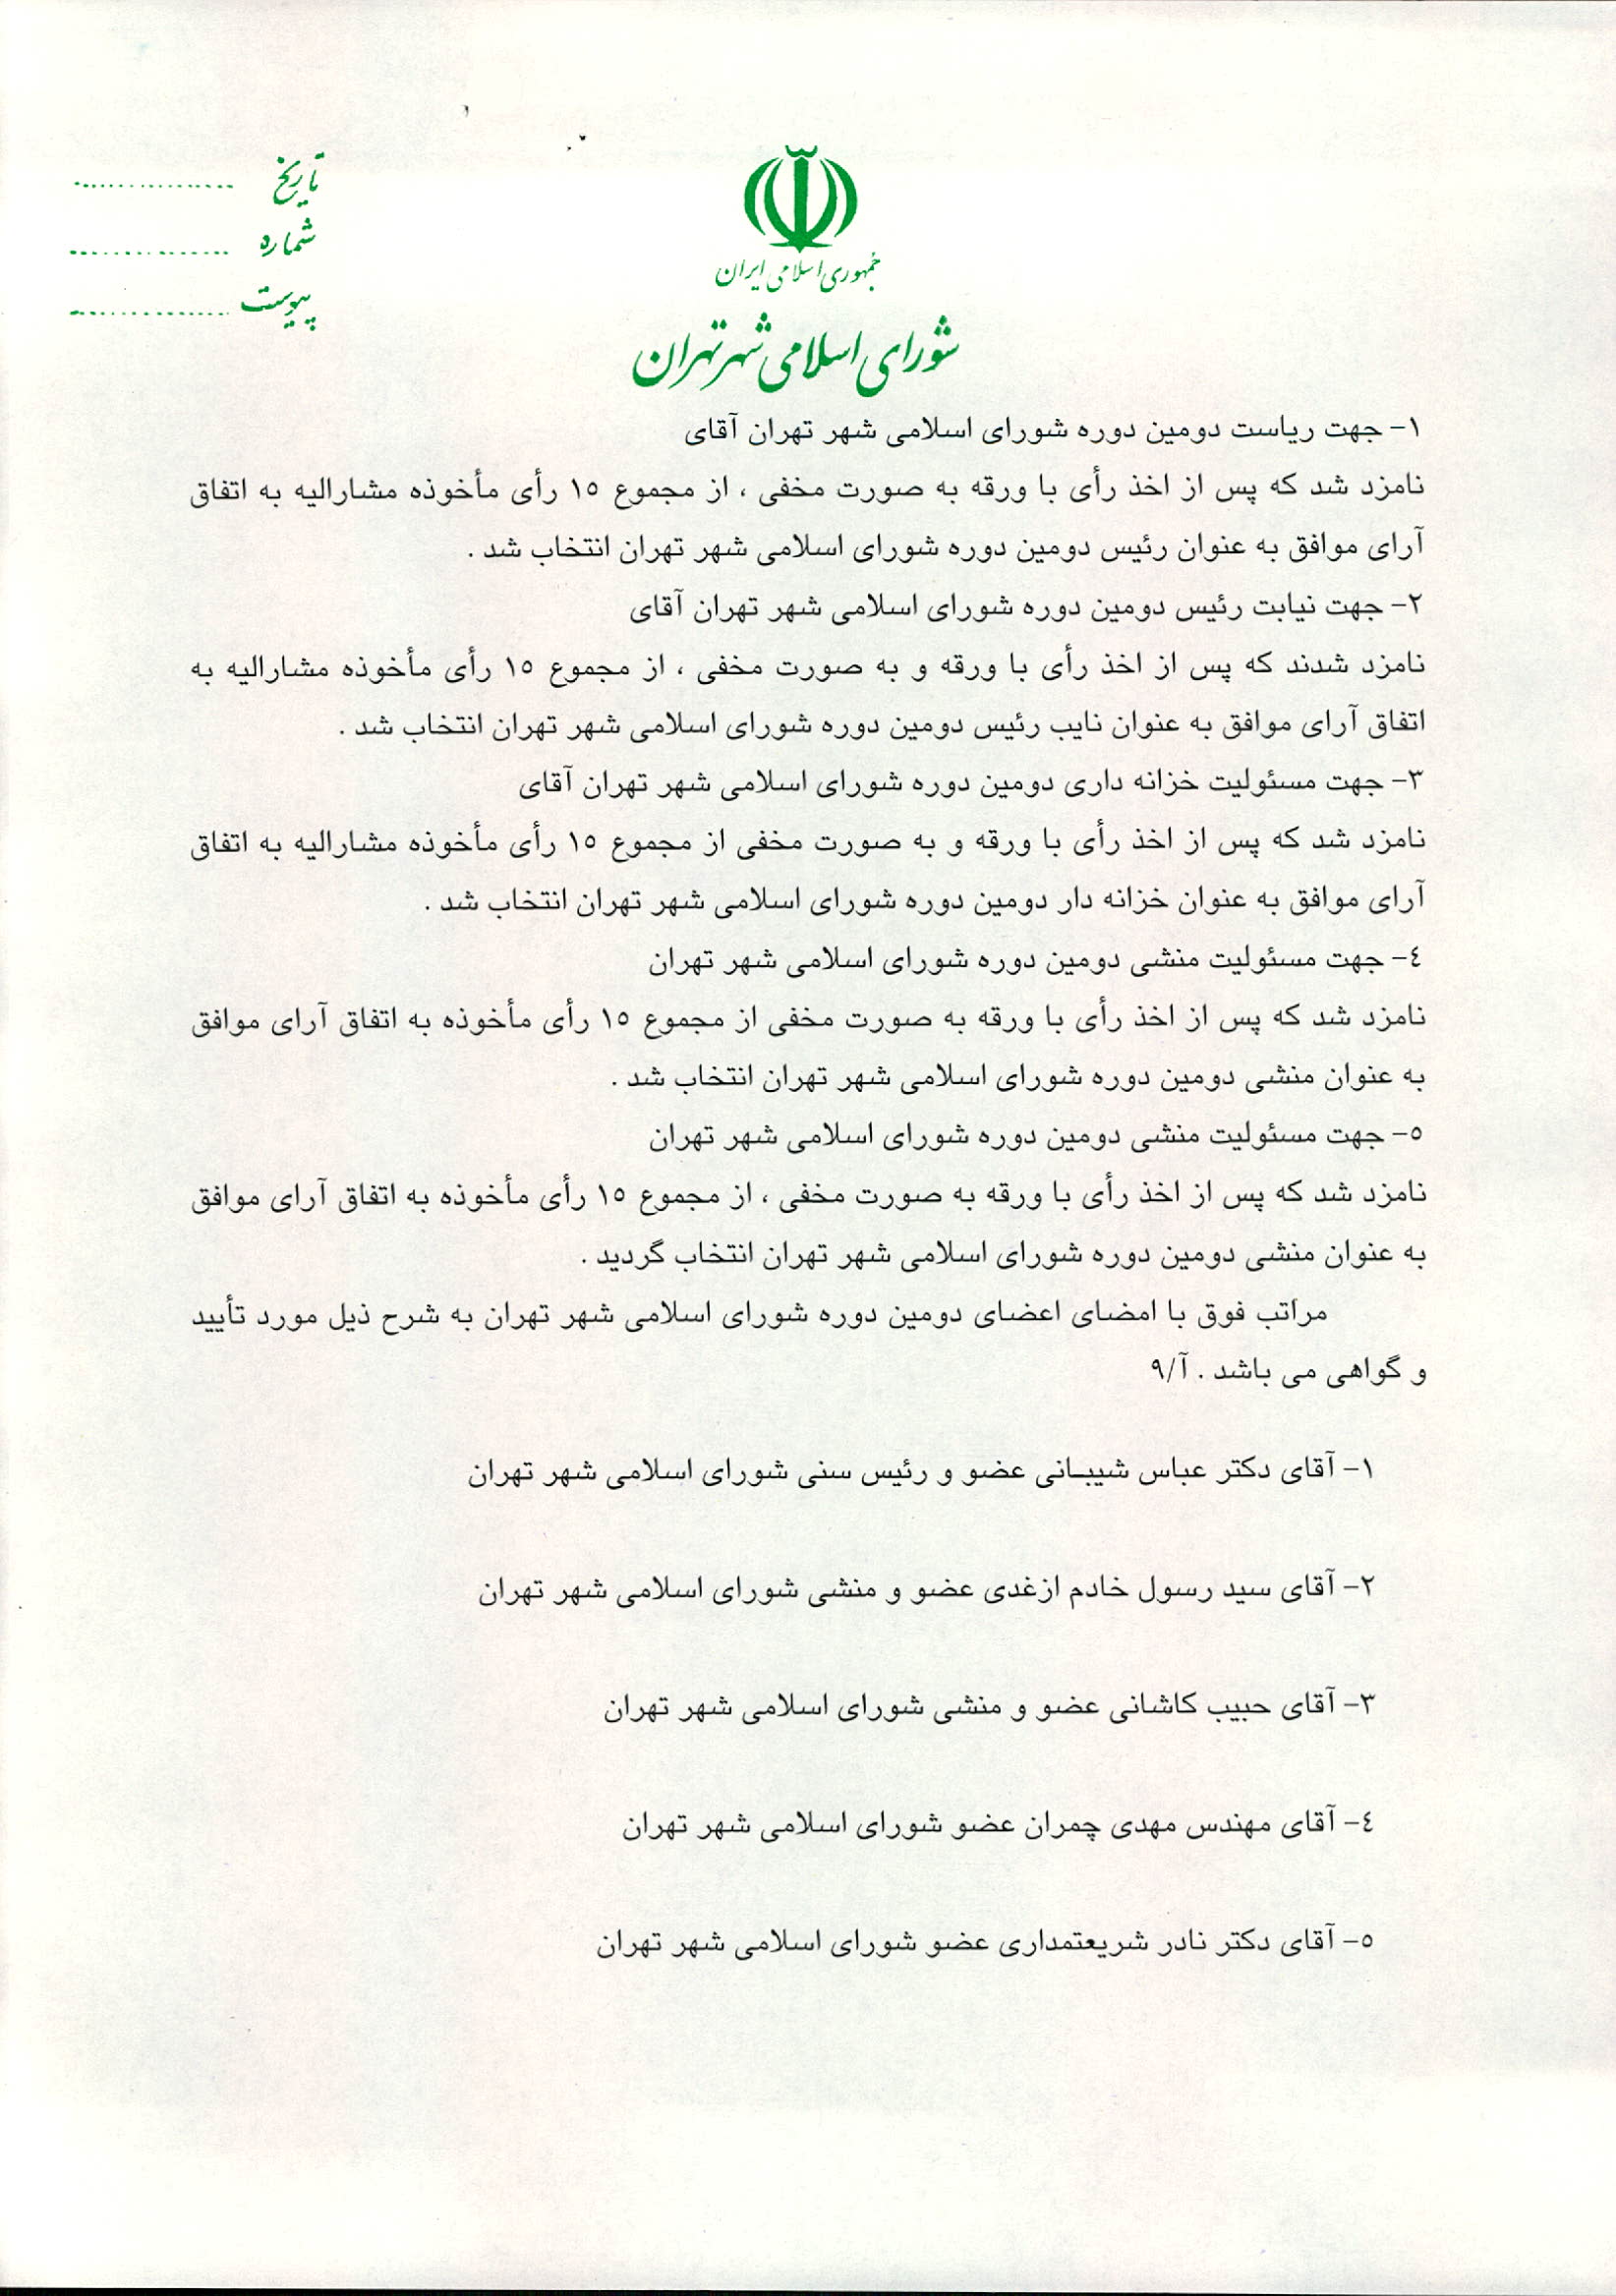 جمهوری اسلامی ایران
شورای اسلامی شهر تهران
تاریخ ................
شماره ................
پیوست ................
۱- جهت ریاست دومین دوره شورای اسلامی شهر تهران آقای
نامزد شد که پس از اخذ رأی با ورقه به صورت مخفی ، از مجموع ۱۵ رأی مأخوذه مشارالیه به اتفاق
آرای موافق به عنوان رئیس دومین دوره شورای اسلامی شهر تهران انتخاب شد .
۲- جهت نیابت رئیس دومین دوره شورای اسلامی شهر تهران آقای
نامزد شدند که پس از اخذ رأی با ورقه و به صورت مخفی ، از مجموع ۱۵ رأی مأخوذه مشارالیه به
اتفاق آرای موافق به عنوان نایب رئیس دومین دوره شورای اسلامی شهر تهران انتخاب شد .
۳- جهت مسئولیت خزانه داری دومین دوره شورای اسلامی شهر تهران آقای
نامزد شد که پس از اخذ رأی با ورقه و به صورت مخفی از مجموع ۱۵ رأی مأخوذه مشارالیه به اتفاق
آرای موافق به عنوان خزانه دار دومین دوره شورای اسلامی شهر تهران انتخاب شد .
٤- جهت مسئولیت منشی دومین دوره شورای اسلامی شهر تهران
نامزد شد که پس از اخذ رأی با ورقه به صورت مخفی از مجموع ۱۵ رأی مأخوذه به اتفاق آرای موافق
به عنوان منشی دومین دوره شورای اسلامی شهر تهران انتخاب شد .
۵- جهت مسئولیت منشی دومین دوره شورای اسلامی شهر تهران
نامزد شد که پس از اخذ رأی با ورقه به صورت مخفی ، از مجموع ۱۵ رأی مأخوذه به اتفاق آرای موافق
به عنوان منشی دومین دوره شورای اسلامی شهر تهران انتخاب گردید .
مراتب فوق با امضای اعضای دومین دوره شورای اسلامی شهر تهران به شرح ذیل مورد تأیید
و گواهی می باشد . آ/۹
۱- آقای دکتر عباس شیبـانی عضو و رئیس سنی شورای اسلامی شهر تهران
۲- آقای سید رسول خادم ازغدی عضو و منشی شورای اسلامی شهر تهران
۳- آقای حبیب کاشانی عضو و منشی شورای اسلامی شهر تهران
٤- آقای مهندس مهدی چمران عضو شورای اسلامی شهر تهران
۵- آقای دکتر نادر شریعتمداری عضو شورای اسلامی شهر تهران